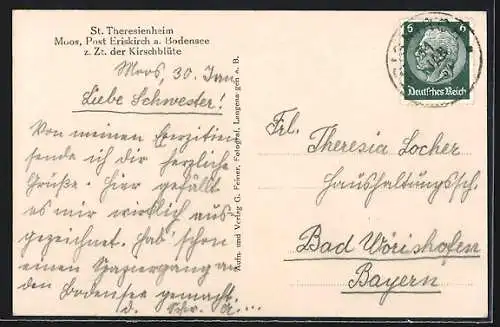 St. Theresienheim
Moos, Post Eriskirch a. Bodensee
z. Zt. der Kirschblüte
Moos, 30. Jan.
Liebe Schwester!
Von meinen Exerzitien
sende ich dir herzliche
Grüße. Hier gefällt
es mir wirklich aus
gezeichnet. Hab' schon
einen Spaziergang an
den Bodensee gemacht.
d. Schw.
Aufn. und Verlag G. Feiner, Fotogräf, Langenargen a. B.
6 6
Deutsches Reich
Frl.
Theresia Locher
Haushaltungssch.
Bad Wörishofen
Bayern